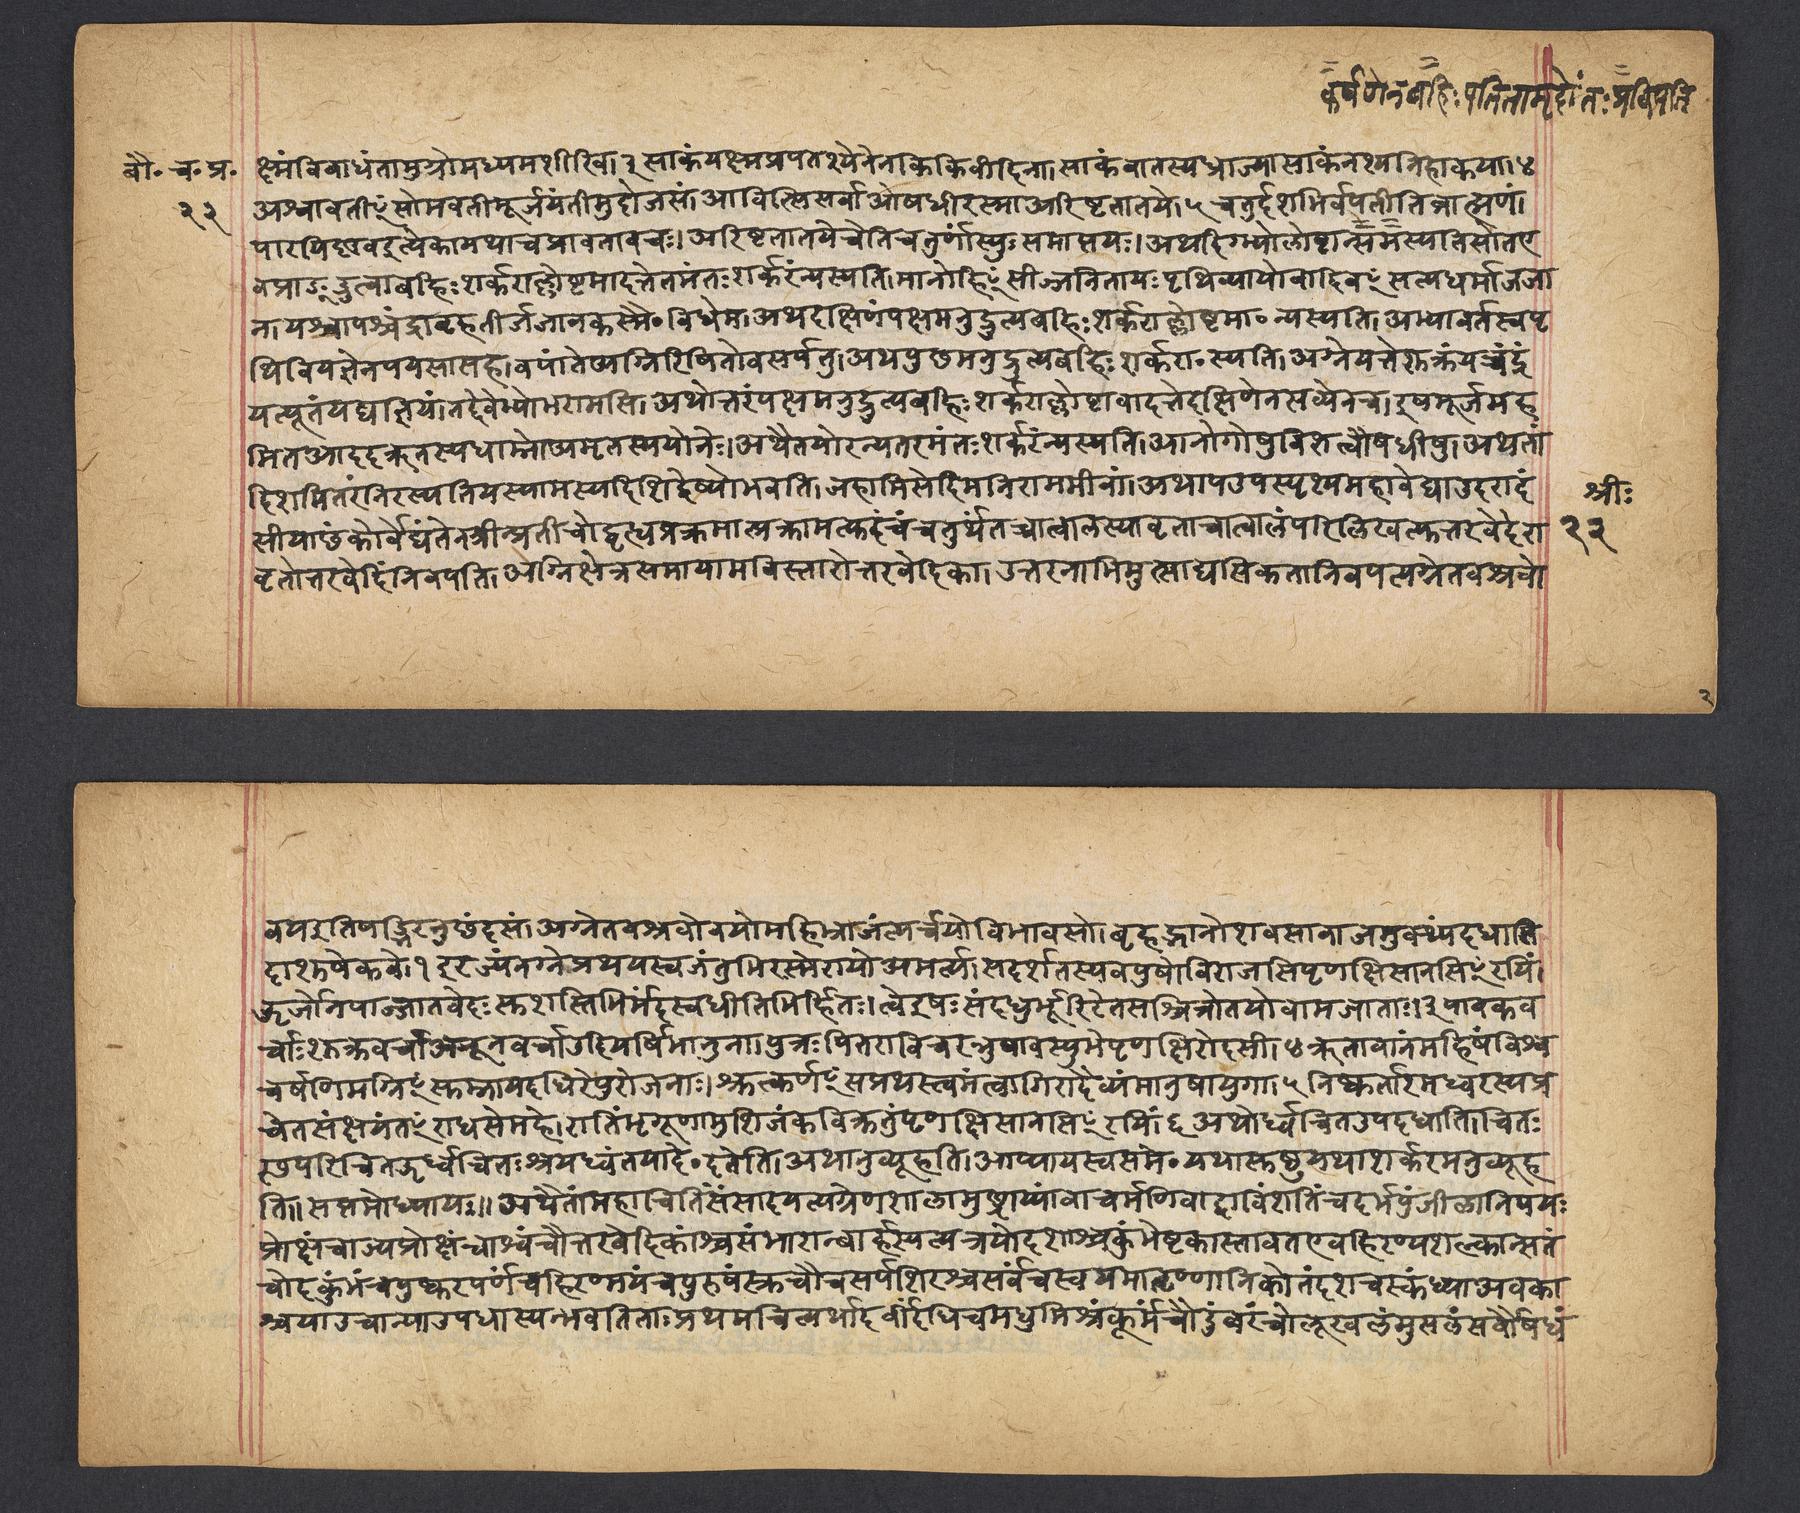 कर्षणेनबहिः पतितामृदोंतः प्रक्षिपति
बौ॰ च॰ प्र॰
२२
क्ष्मंविबाधंतामुग्रोमध्यमशीरिव। ३ साकंयक्ष्मप्रपतश्येनेनकिकिदीविना। साकंवातस्यध्राज्यासाकंनश्यनिहाकया। ४
अश्वावती२ँसोमवतीमूर्जयंतीमुदोजसं। आवित्सिसर्वाओषधीरस्माअरिष्टतातये। ५ चतुर्दशभिर्वपतीतिब्राह्मणं।
पारयिष्णवइत्येकामथाचप्रावतावचः। अरिष्टतातयेचेतिचतुर्णांस्युःसमाप्तयः। अथदिग्भ्योलोष्टान्समस्यतिसोतए
वप्राङ्द्रुत्वाबहिःशर्कराल्लोष्टमादत्तेतमंतःशर्करंन्यस्यति। मानोहि२ँसीज्जनितायःपृथिव्यायोवादिव२ँसत्यधर्माजजा
न। यश्चापश्चंद्राबृहतीर्जजानकस्मै॰ विधेम। अथदक्षिणंपक्षमनुद्रुत्यबहिःशर्कराल्लोष्टमा॰ न्यस्यति। अभ्यावर्तस्वपृ
थिवियज्ञेनपयसासह। वपांतेअग्निरिषितोवसर्पतु। अथपुछमनुद्रुत्यबहिःशर्करा॰ स्यति। अग्नेयत्तेशुक्रंयच्चंद्रं
यत्पूतंयद्यज्ञियं। तद्देवेभ्योभरामसि। अथोत्तरंपक्षमनुद्रुत्यबहिःशर्कराल्लोष्टावादत्तेदक्षिणेनसव्येनच। इषमूर्जमह
मितआददऋतस्यधाम्नोअमृतस्ययोनेः। अथैतयोरन्यतरमंतःशर्करंन्यस्यति। आनोगोषुविशत्वौषधीषु। अथतां
दिशमितरंनिरस्यतियस्यामस्यदिशिद्वेष्योभवति। जहामिसेदिमनिराममीवां। अथापउपस्पृश्यमहावेद्याउदरादं
श्रीः
२२
वृतोत्तरवेदिंनिवपति। अग्निक्षेत्रसमायामविस्तारोत्तरवेदिका। उत्तरनाभिमुत्साद्यसिकतानिवपत्यग्नेतवश्रवो
वयइतिषड्भिरनुछंदसं। अग्नेतवश्रवोवयोमहिभ्राजंत्यर्चयोविभावसो। बृहद्भानोशवसावाजमुक्थ्यंदधासि
दाशुषेकवे। १ इरज्यंनग्नेप्रथयस्वजंतुभिरस्मेरायोअमर्त्य। सदर्शतस्यवपुषोविराजसिपृणक्षिसानसि२ँरयिं।
ऊर्जोनपाज्जातवेदःसुशस्तिभिर्मंदस्वधीतिभिर्हितः। त्वेइषःसंदधुर्भूरिरेतसश्चित्रोतयोवामजाताः। ३ पावकव
र्चाःशुक्रवर्चाअनूनवर्चाउदियर्षिभानुना। पुत्रःपितराविचरन्नुपावस्युभेपृणक्षिरोदसी। ४ ऋतावानंमहिषंविश्व
चर्षणिमग्नि२ँसुम्नायदधिरेपुरोजनाः। श्रुत्कर्ण२ँसप्रथस्त्वमंत्वागिरादैव्यंमानुषायुगा। ५ निष्कर्तारमध्वरस्यप्र
चेतसंक्षयंत२ँराधसेमहे। रातिंभृगूणामुशिजंकविक्रतुंपृणक्षिसानसि२ँरयिं। ६ अथोर्ध्वचितउपदधाति। चितः
स्थपरिचितऊर्ध्वचितःश्रयध्वंतयादे॰ दतेति। अथानुव्यूहति। आप्यायस्वसमे॰ यथासुष्ठुयथाशर्करमनुव्यूह
ति॥ सप्तमोध्यायः॥ अथैतांमहाचितिंसंसादयत्यग्रेणशालामुष्ट्राय्यांवाचर्मणिवाद्वाविंशतिंचदर्भपुंजीलानिपयः
प्रोक्षंचाज्यप्रोक्षंचाश्वंचौत्तरवेदिकांश्चसंभारान्बार्हस्पत्यत्रयोदशाश्चकुंभेष्टकास्तावतएवहिरण्यशल्कान्सतं
चोदकुंभंचपुष्करपर्णंचहिरण्मयंचपुरुषंस्रुचौचसर्पशिरश्चसर्वंचस्वयमातृण्णानिकोतंदशचस्कंध्याअवका
श्चयाउचान्याउपधास्यन्भवतिताःप्रथमचित्यर्थादूर्वांदधिचमधुमिश्रंकूर्मंचौदुंबरंचोलूखलंमुसलंसर्वौषधं